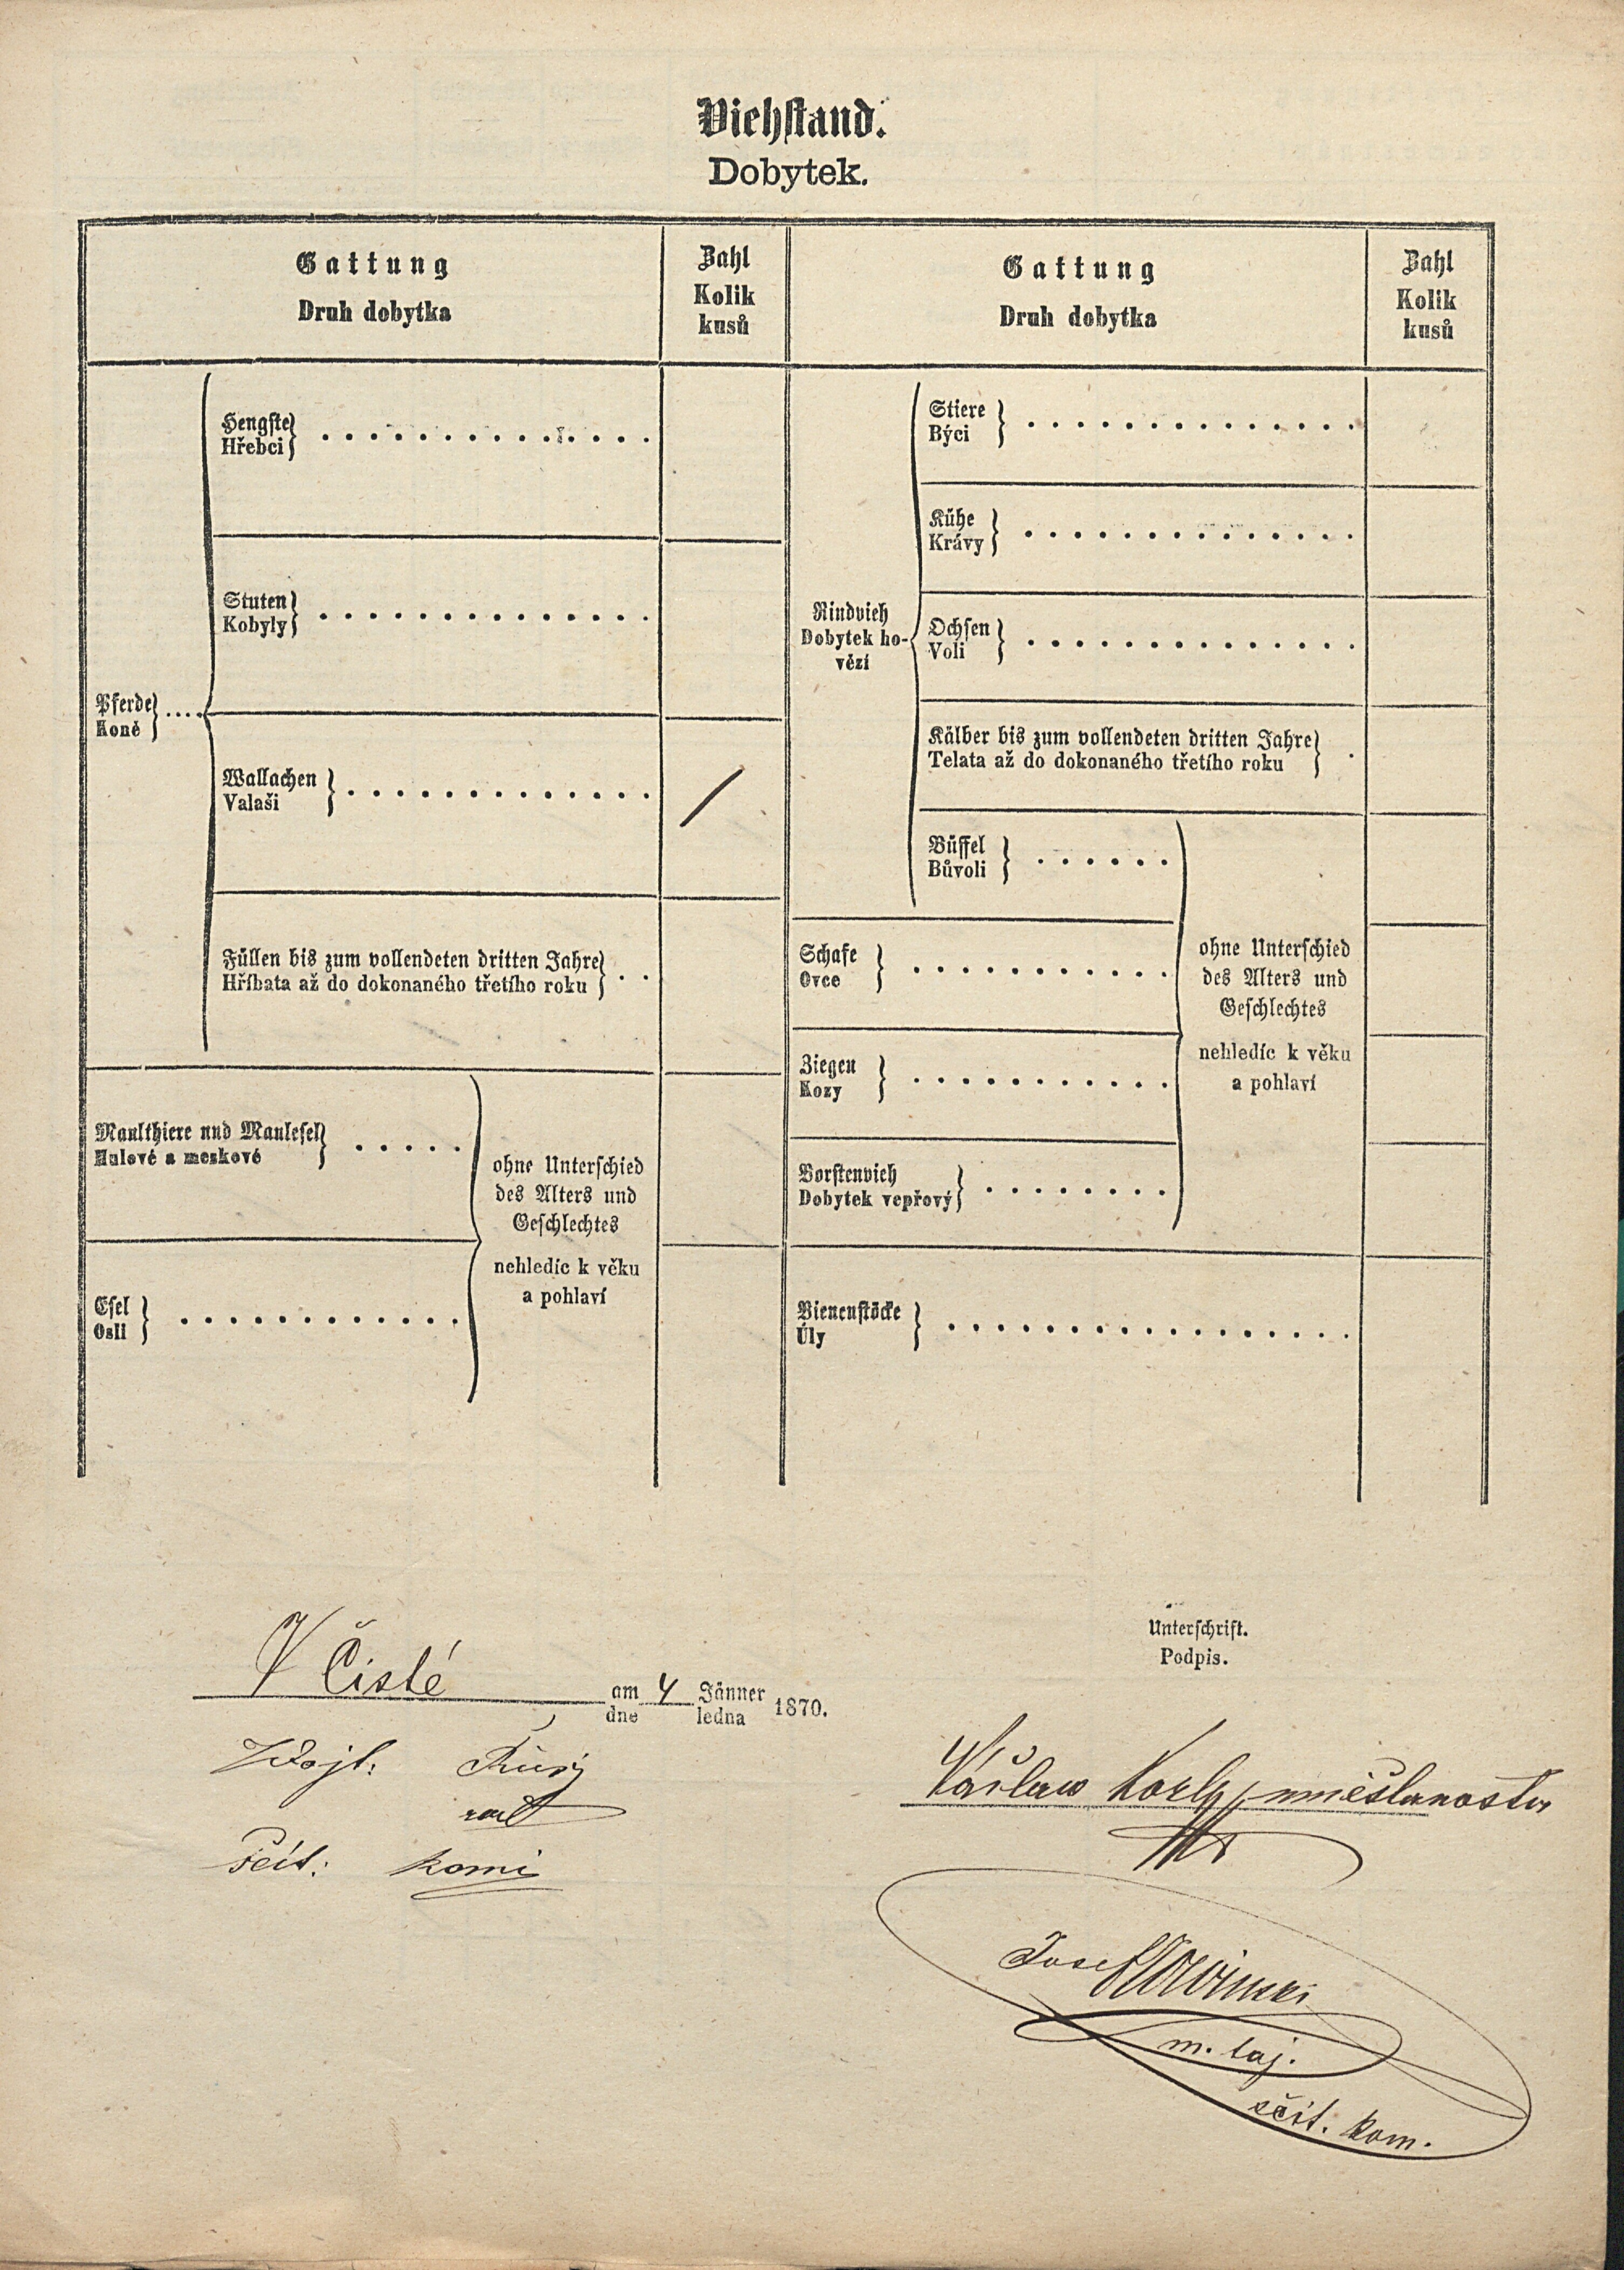 Viehstand.
Dobytek.
Gattung
Druh dobytka
Zahl
Kolik
kusů
Gattung
Druh dobytka
Zahl
Kolik
kusů
Pferde
Koně
Hengste
Hřebci
Stuten
Kobyly
Wallachen
Valaši
/
Füllen bis zum vollendeten dritten Jahre
Hříbata až do dokonaného třetího roku
Maulthiere und Maulesel
Mulové a meskové
Esel
Osli
ohne Unterschied
des Alters und
Geschlechtes
nehledíc k věku
a pohlaví
Rindvieh
Dobytek ho-
vězí
Stiere
Býci
Kühe
Krávy
Ochsen
Voli
Kälber bis zum vollendeten dritten Jahre
Telata až do dokonaného třetího roku
Büffel
Bůvoli
Schafe
Ovce
Ziegen
Kozy
Borstenvieh
Dobytek vepřový
ohne Unterschied
des Alters und
Geschlechtes
nehledíc k věku
a pohlaví
Bienenstöcke
Úly
V Čisté am 4 Jänner 1870.
dne ledna
Unterschrift.
Podpis.
rad
sčít: komi
Václav
Josef
m. taj.
sčít. kom.